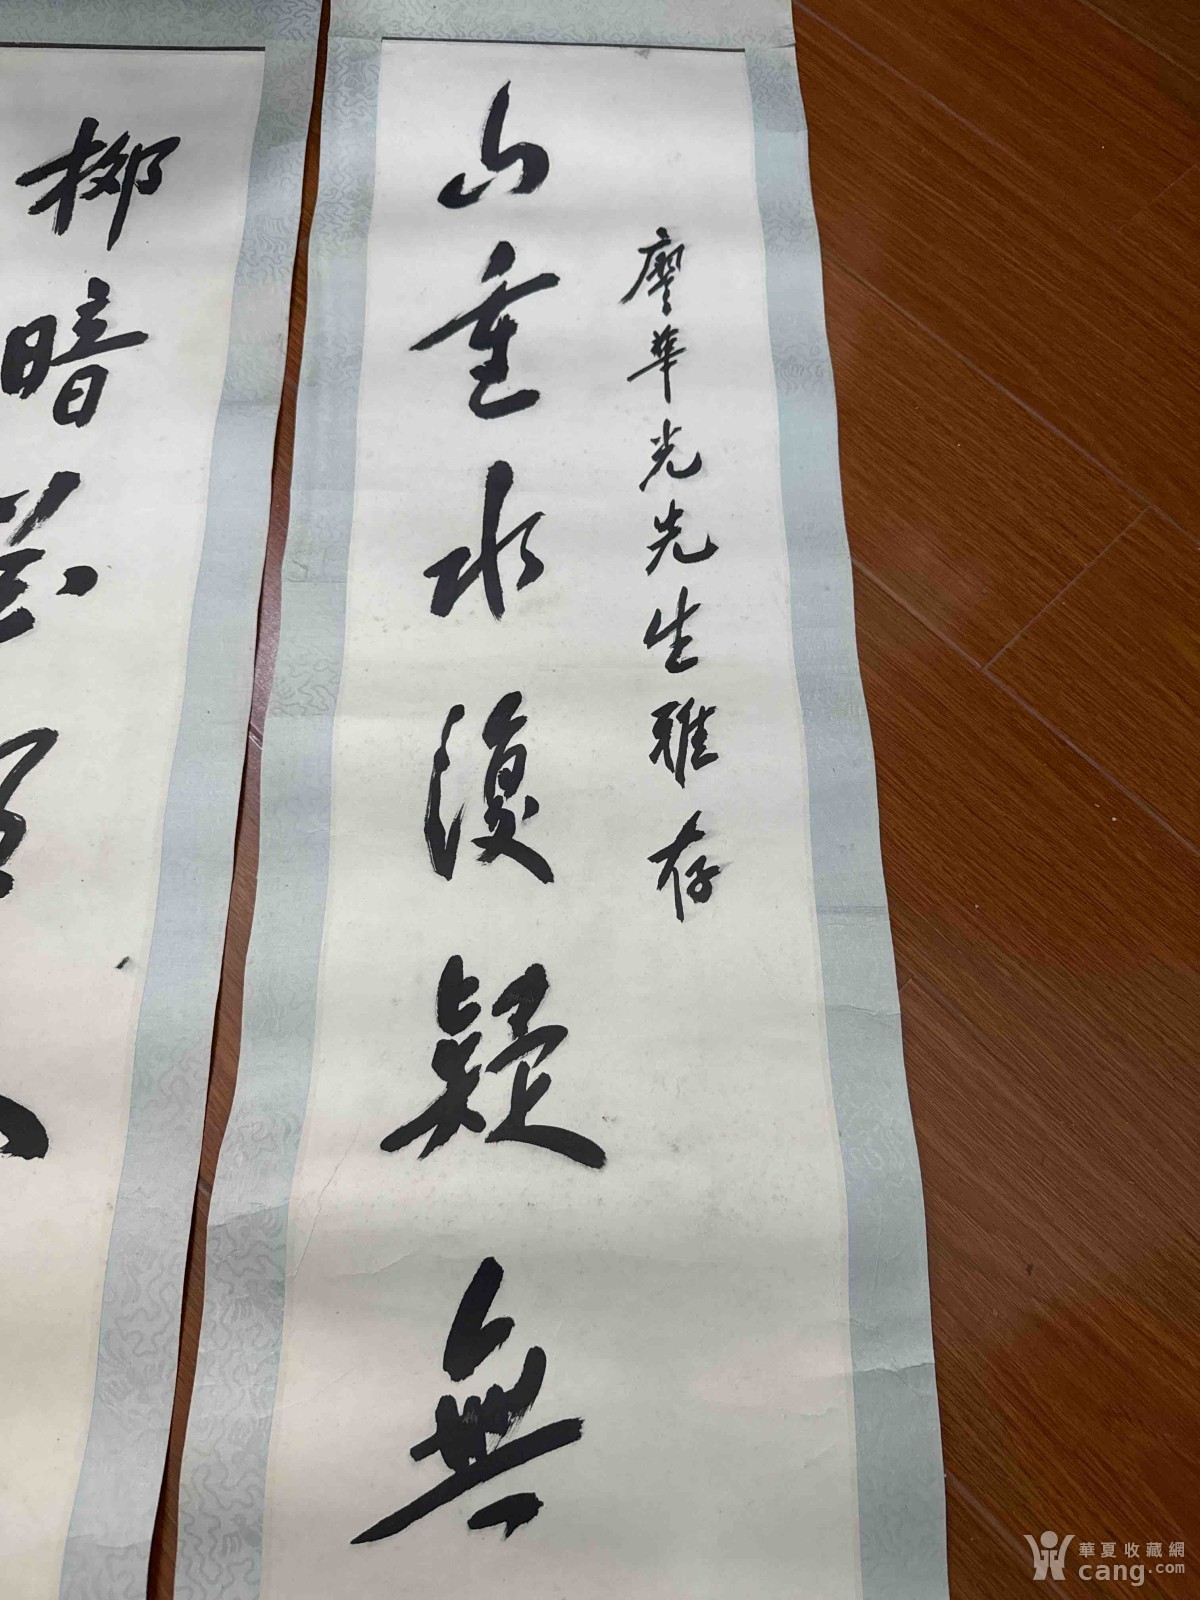 廖華光先生雅存
山重水復疑無
柳暗花明又
華夏收藏網
cang.com